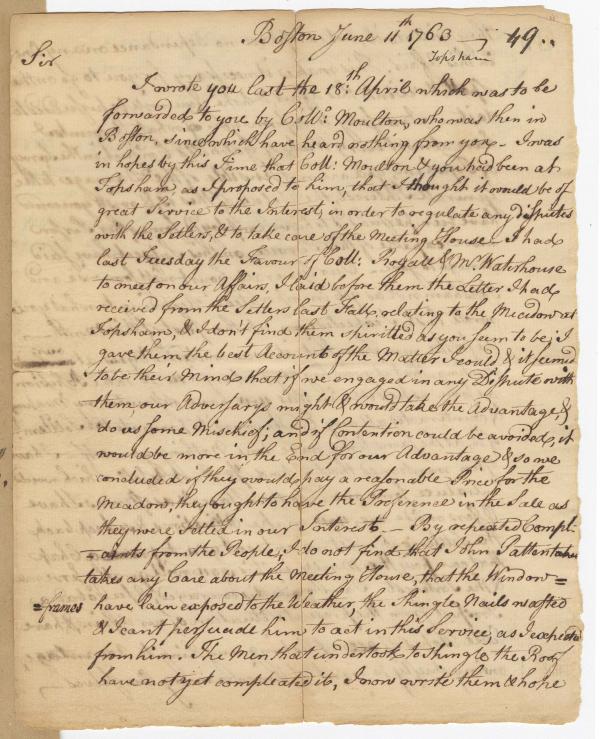 Boston June 11th 1763 49..
Topsham
Sir
I wrote you last the 18th: April which was to be
forwarded to you by Collo. Moulton, who was then in
Boston, since which have heard nothing from you - I was
in hopes by this Time that Coll: Moulton & you had been at
Topsham, as I proposed to him, that I thought it would be of
great Service to the Interest, in order to regulate any disputes
with the Setlers, & to take care of the Meeting House - I had
last Tuesday the Favour of Coll: Royall & Mr. Waterhouse
to meet on our Affairs, I laid before them the Letter I had
received from the Setlers last Fall, relating to the Meadow at
Topsham, & I don't find them spiritted as you seem to be; I
gave them the best Account of the Matter I could & it seemed
to be their Mind, that if we engaged in any Dispute with
them, our Adversarys might & would take the Advantage, &
do us some Mischief; and if Contention could be avoided, it
would be more in the End for our Advantage & so we
concluded if they would pay a reasonable Price for the
Meadow, they ought to have the Preference in the Sale as
they were Setled in our Interest - By repeated Compl-
-aints from the People, I do not find that John Patten
takes any Care about the Meeting House, that the Window=
=frames have lain exposed to the Weather, the Shingle Nails wasted
& I cant persuade him to act in this Service, as I expected
from him. The Men that undertook to shingle the Roof
have not yet compleated it, I now write them & hope